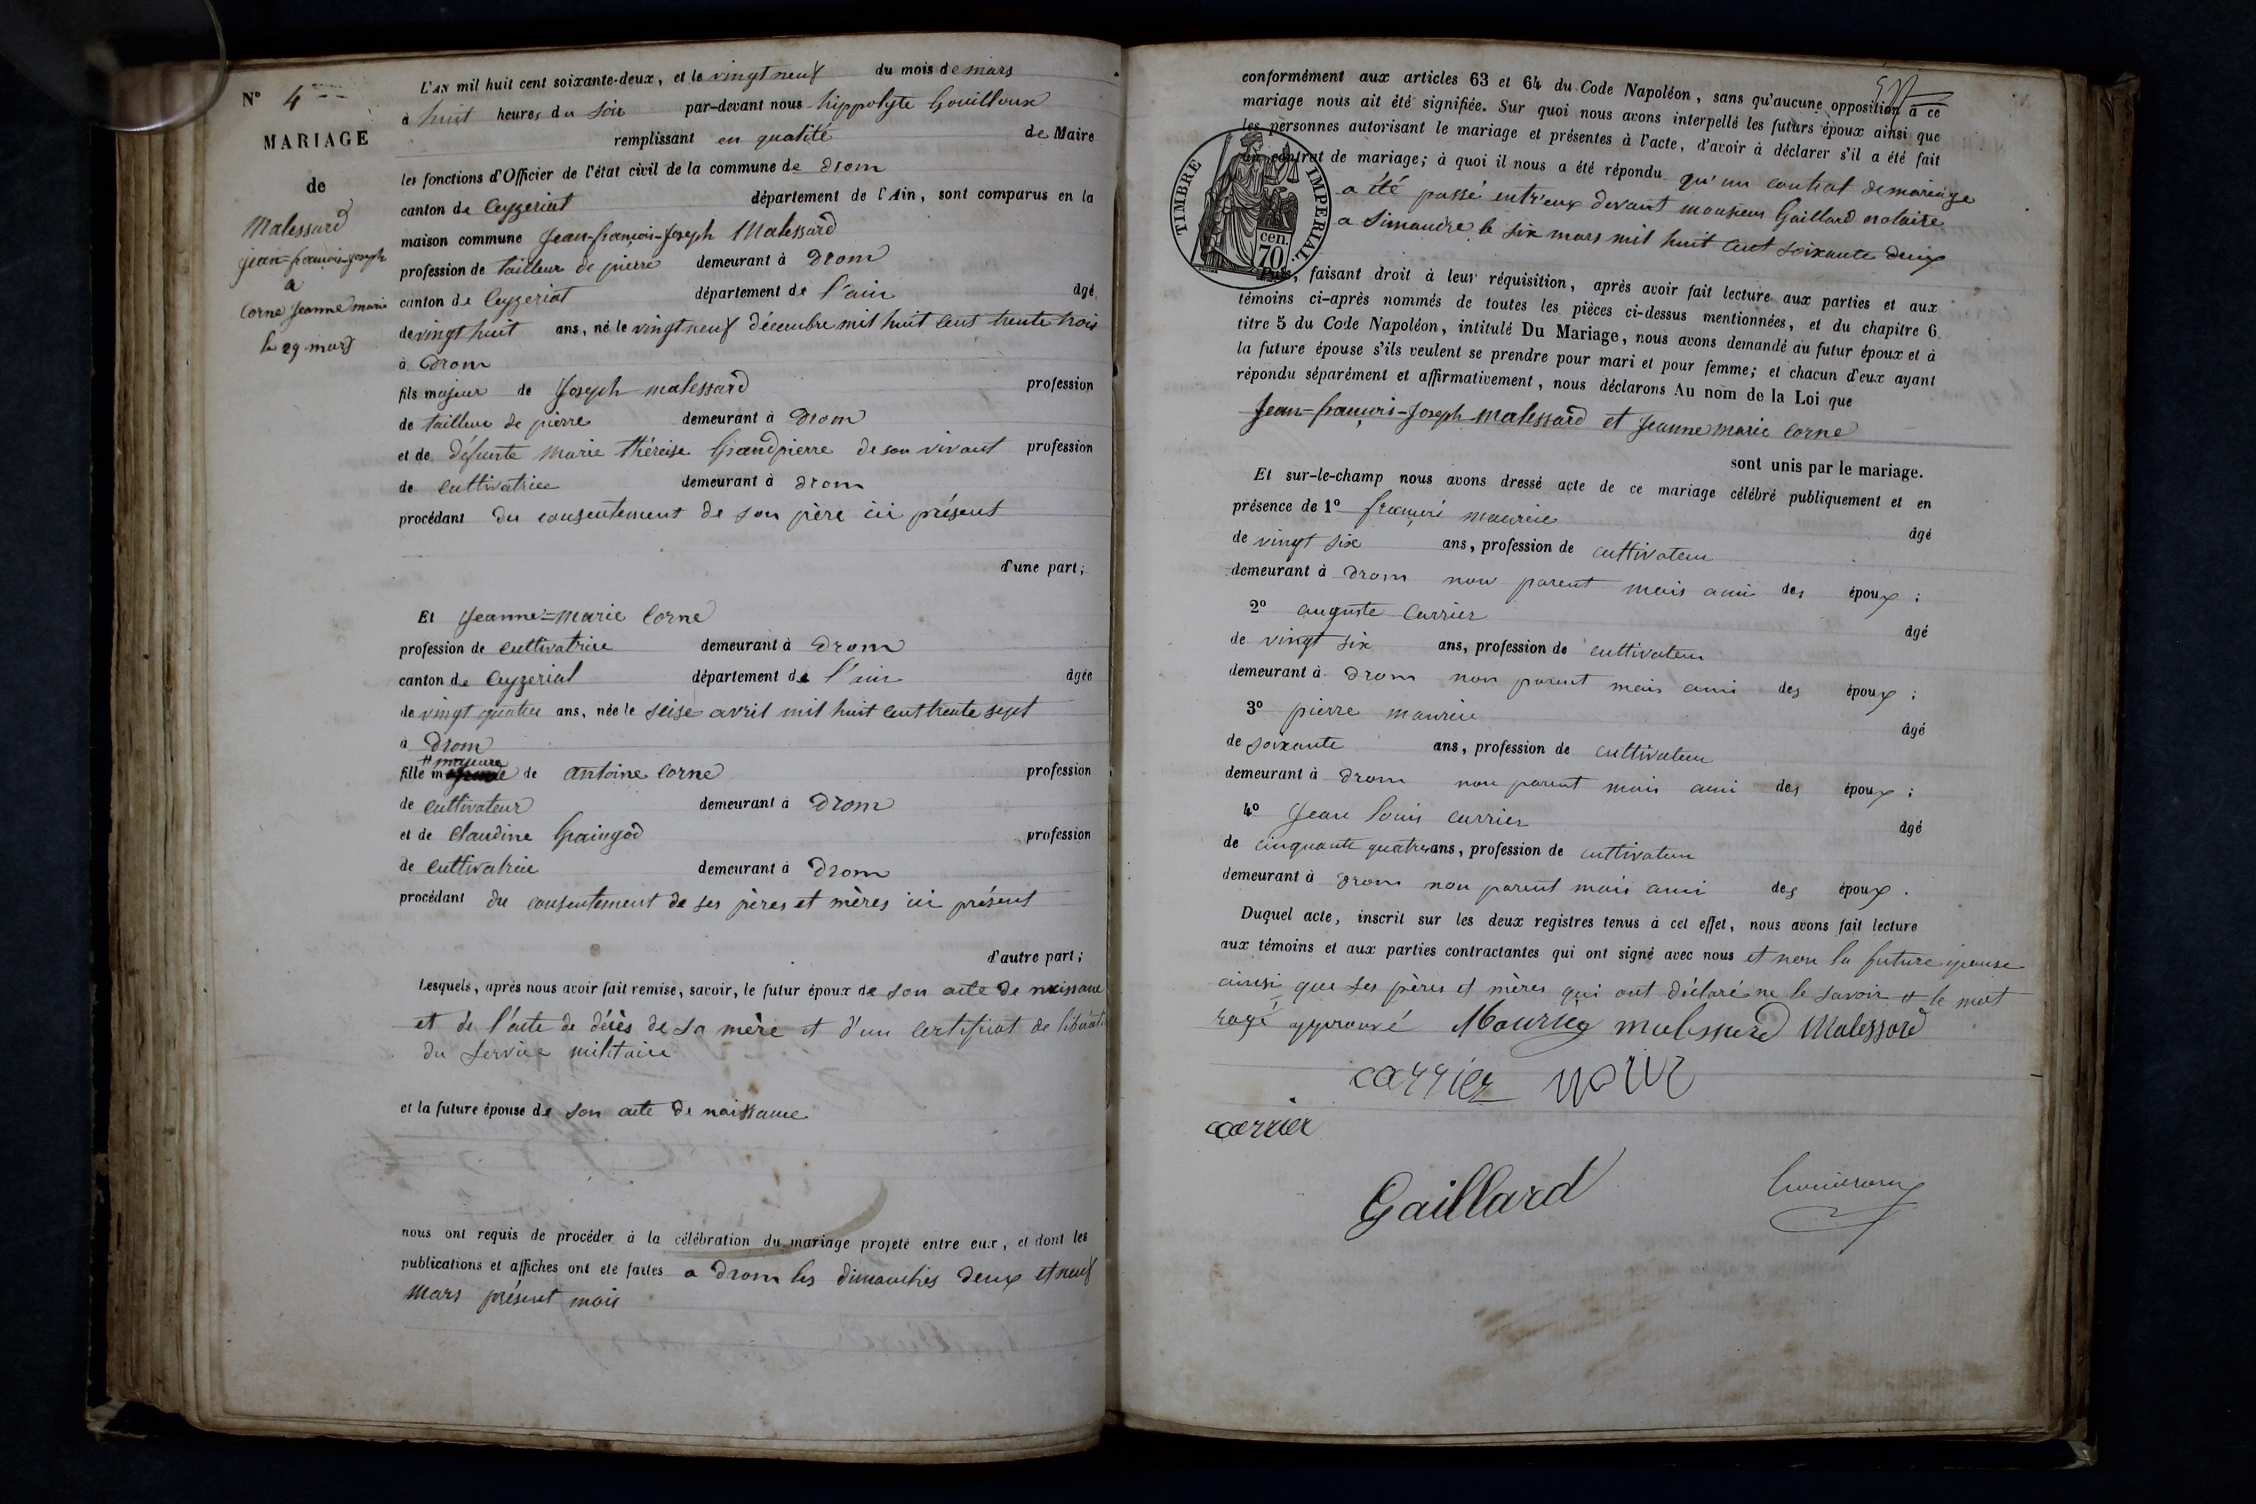 N° 4
MARIAGE
de
Malessard
jean=françois-joseph
a
Corne Jeanne marie
le 29 mars
L'AN mil huit cent soixante-deux, et le vingt neuf du mois de mars
à huit heures du soir par-devant nous hippolyte Gouilloux
remplissant en qualité de Maire
les fonctions d'Officier de l'état civil de la commune de Drom
canton de Ceyzeriat département de l'Ain, sont comparus en la
maison commune Jean-françois-Joseph Malessard
profession de tailleur de pierre demeurant à Drom
canton de Ceyzeriat département de l'ain âgé
de vingt huit ans, né le vingt neuf décembre mil huit cent trente trois
à Drom
fils majeur de Joseph malessard profession
de tailleur de pierre demeurant à Drom
et de défunte Marie théreise Grandpierre de son vivant profession
de cultivatrice demeurant à Drom
procédant du consentement de son père ici présent
d'une part;
Et Jeanne=Marie Corne
profession de cultivatrice demeurant à Drom
canton de Ceyzeriat département de l'ain âgée
de vingt quatre ans, née le seise avril mil huit cent trente sept
à Drom
# majeure
fille de antoine Corne profession
de cultivateur demeurant à Drom
et de Claudine Graingod profession
de cultivatrice demeurant à Drom
procédant du consentement de ses pères et mères ici présent
d'autre part;
Lesquels, après nous avoir fait remise, savoir, le futur époux de son acte de naissance
et de l'acte de décès de sa mère et d'un certificat de libérati
du service militaire
et la future épouse de son acte de naissance
nous ont requis de procéder à la célébration du mariage projeté entre eux, et dont les
publications et affiches ont été faites a Drom les dimanches deux et neuf
Mars présent mois
conformément aux articles 63 et 64 du Code Napoléon, sans qu'aucune opposition à ce
mariage nous ait été signifiée. Sur quoi nous avons interpellé les futurs époux ainsi que
les personnes autorisant le mariage et présentes à l'acte, d'avoir à déclarer s'il a été fait
un contrat de mariage; à quoi il nous a été répondu qu'un contrat de mariage
a été passé entr'eux devant monsieur Gaillard notaire
a Simandre le six mars mil huit cent soixante deux
TIMBRE IMPERIAL.
cen.
70
Puis, faisant droit à leur réquisition, après avoir fait lecture aux parties et aux
témoins ci-après nommés de toutes les pièces ci-dessus mentionnées, et du chapitre 6
titre 5 du Code Napoléon, intitulé Du Mariage, nous avons demandé au futur époux et à
la future épouse s'ils veulent se prendre pour mari et pour femme; et chacun d'eux ayant
répondu séparément et affirmativement, nous déclarons Au nom de la Loi que
Jean=françois-Joseph Malessard et Jeanne marie Corne
sont unis par le mariage.
Et sur-le-champ nous avons dressé acte de ce mariage célébré publiquement et en
présence de 1° françois maurice âgé
de vingt six ans, profession de cultivateur
demeurant à Drom non parent mais ami des époux ;
2° auguste Carrier âgé
de vingt six ans, profession de cultivateur
demeurant à Drom non parent mais ami des époux ;
3° pierre maurice âgé
de soixante ans, profession de cultivateur
demeurant à Drom non parent mais ami des époux ;
4° Jean louis carrier âgé
de cinquante quatre ans, profession de cultivateur
demeurant à Drom non parent mais ami des époux .
Duquel acte, inscrit sur les deux registres tenus à cet effet, nous avons fait lecture
aux témoins et aux parties contractantes qui ont signé avec nous et non la future épouse
ainsi que ses pères et mères qui ont déclaré ne le savoir # le mot
rayé approuvé Maurice malessard Malessard
carrier
carrier
Gaillard